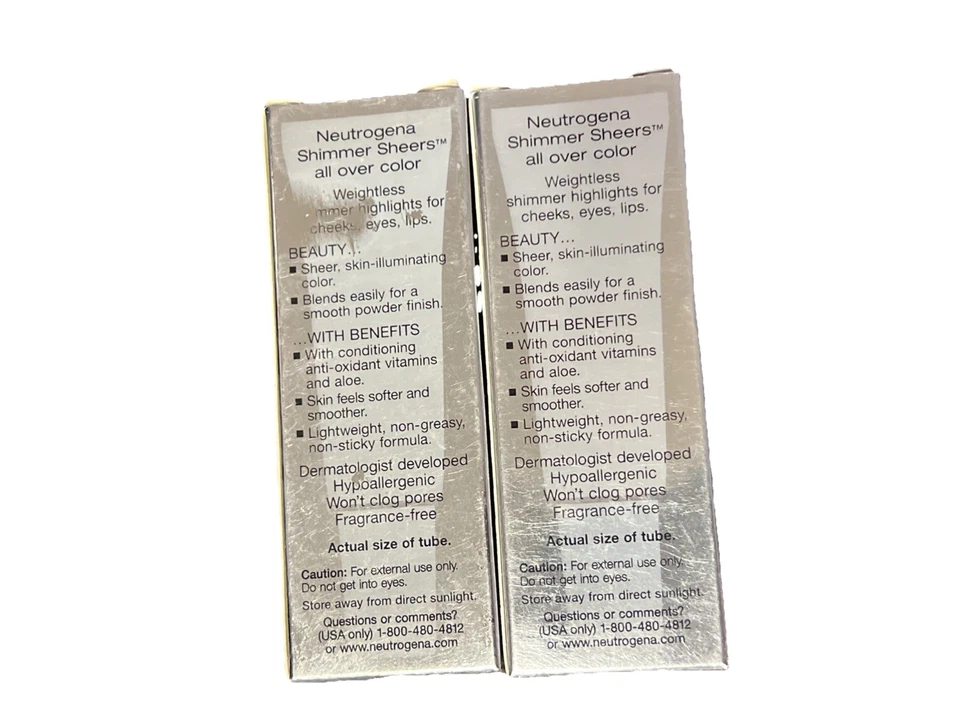 Neutrogena
Shimmer Sheers™
all over color
Weightless
mmer highlights for
cheeks, eyes, lips.
BEAUTY...
▪ Sheer, skin-illuminating
color.
▪ Blends easily for a
smooth powder finish.
...WITH BENEFITS
▪ With conditioning
anti-oxidant vitamins
and aloe.
▪ Skin feels softer and
smoother.
▪ Lightweight, non-greasy,
non-sticky formula.
Dermatologist developed
Hypoallergenic
Won't clog pores
Fragrance-free
Actual size of tube.
Caution: For external use only.
Do not get into eyes.
Store away from direct sunlight.
Questions or comments?
(USA only) 1-800-480-4812
or www.neutrogena.com
Neutrogena
Shimmer Sheers™
all over color
Weightless
shimmer highlights for
cheeks, eyes, lips.
BEAUTY...
▪ Sheer, skin-illuminating
color.
▪ Blends easily for a
smooth powder finish.
...WITH BENEFITS
▪ With conditioning
anti-oxidant vitamins
and aloe.
▪ Skin feels softer and
smoother.
▪ Lightweight, non-greasy,
non-sticky formula.
Dermatologist developed
Hypoallergenic
Won't clog pores
Fragrance-free
Actual size of tube.
Caution: For external use only.
Do not get into eyes.
Store away from direct sunlight.
Questions or comments?
(USA only) 1-800-480-4812
or www.neutrogena.com